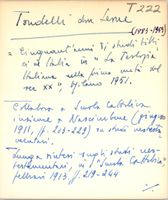 T 222
Tondelli, don Leone
(1883-1953)
"Cinquant'anni di studi bibli
ci in Italia" in "La Teologia
Italiana nella prima metà del
sec XX", Milano 1951.
Collabora a Scuola Cattolica
insieme a Nascimbene (
1911, ff. 203-229) su studi
mentari.
Lunga sintesi sugli studi neo-
testamentari, in "Scuola Cattolica"
febbraio 1913, ff. 219-244